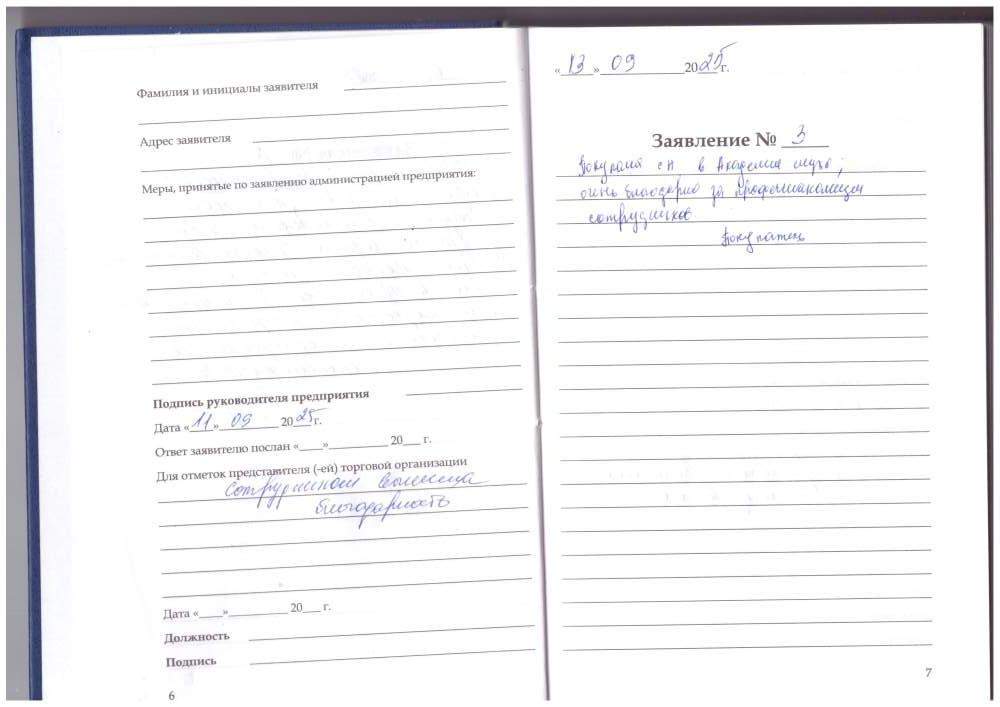 Фамилия и инициалы заявителя
Адрес заявителя
Меры, принятые по заявлению администрацией предприятия:
Подпись руководителя предприятия
Дата «11» 09 2025 г.
Ответ заявителю послан «___»__________ 20___ г.
Для отметок представителя (-ей) торговой организации
сотрудникам вынесена
благодарность
Дата «____»__________ 20___ г.
Должность
Подпись
6
«13» 09 2025 г.
Заявление № 3
в Академии
очень благодарна за
сотрудников
Покупатель
7